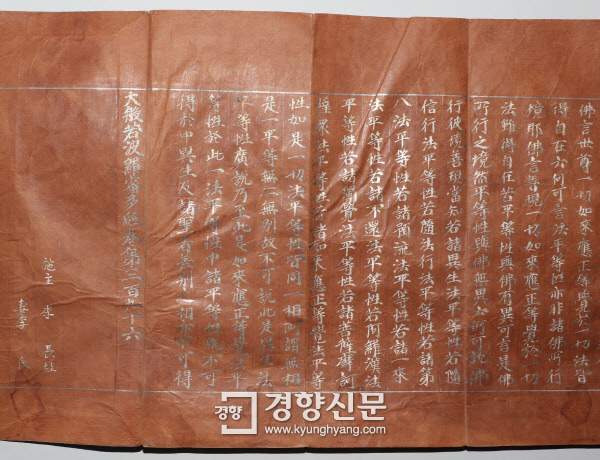 佛言世尊一切如來應正等覺於一切法皆
得自在云何可言法平等性亦非諸佛所行
境耶佛言善現一切如來應正等覺於一切
法雖得自在若平等性與佛有異可言是佛
所行之境然平等性與佛無異云何可說佛
行彼境善現當知若諸異生法平等性若隨
信行法平等性若隨法行法平等性若諸第
八法平等性若諸預流法平等性若諸一來
法平等性若諸不還法平等性若阿羅漢法
平等性若諸獨覺法平等性若諸菩薩摩訶
薩衆法平等性若諸如來應正等覺法平等
性如是一切法平等性皆同一相所謂無相
是一平等無二無別故不可說此是異生法
平等性廣說乃至此是如來應正等覺法平
等性於此一法平等性中諸平等性既不可
得於中異生及諸聖者差別之相亦不可得
大般若波羅蜜多經卷第三百九十六
主 李 長
경향 경향신문
www.kyunghyang.com